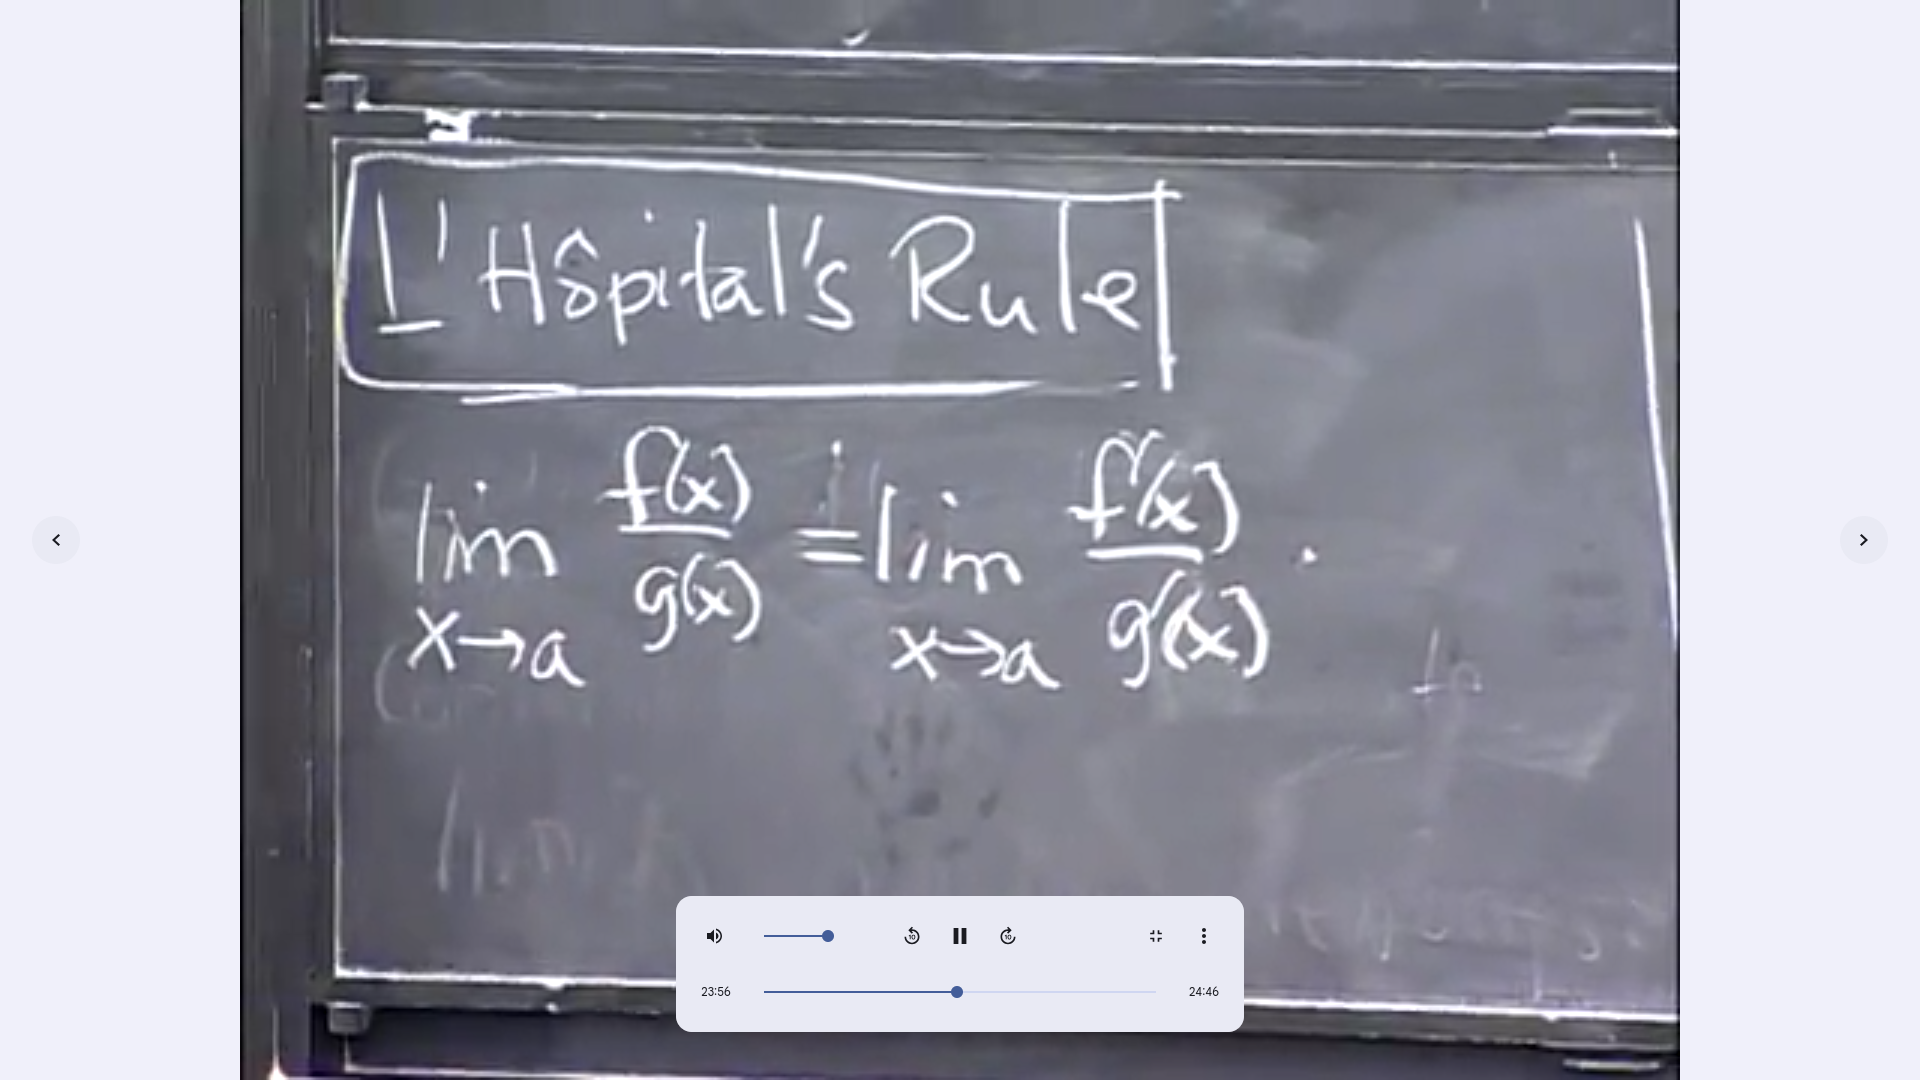 L'Hôpital's Rule
lim x→a f(x)/g(x) = lim x→a f'(x)/g'(x).
23:56
24:46